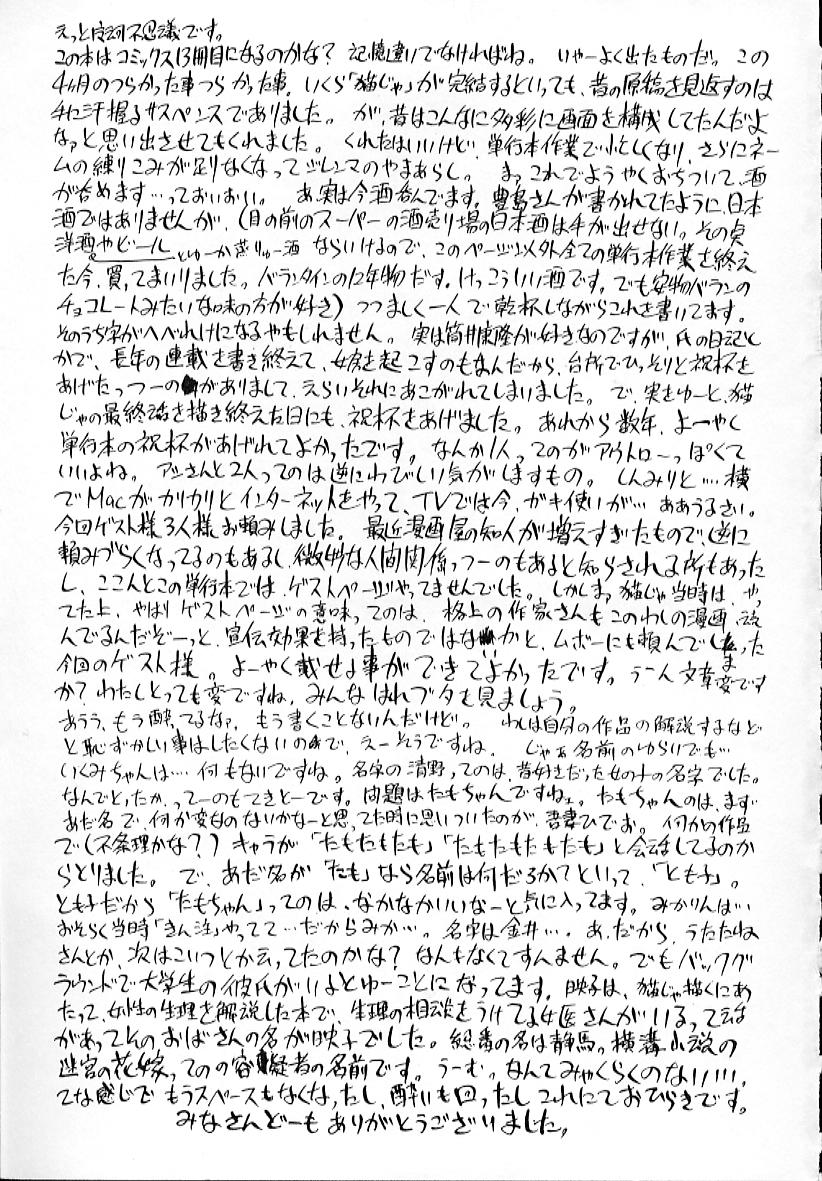 えっと陸河不思議です。
この本はコミックス13冊目になるのかな? 記憶違いでなければね。 いやーよく出たものだっ この
4ヶ月のつらかった事つらかった事。いくら「猫じゃ」が完結するといっても、昔の原稿を見返すのは
手に汗握るサスペンスでありました。 が、昔はこんなに多彩に画面を構成してたんだよ
なァと思い出させてもくれました。 くれたはいいけど、単行本作業で忙しくなり、さらにネー
ムの練りこみが足りなくなってジレンマのやまあらし。 まっこれでようやくおちついて、酒
が呑めます…っておいおい。 あ、実は今酒呑んでます。豊島さんが書かれてたように、日本
酒ではありませんが、(目の前のスーパーの酒売り場の日本酒は手が出せない。その点
洋酒やビールとゆーか蒸りゅー酒ならいけるので、このページ以外全ての単行本作業を終え
た今、買ってまいりました。バランタインの12年物だす。けっこういい酒です。でも安物バランの
チョコレートみたいな味の方が好き) つつましく一人で乾杯しながらこれを書いてます。
そのうち字がへべれけになるやもしれません。 実は筒井康隆が好きなのですが、氏の日記と
かで、長年の連載を書き終えて、女房を起こすのもなんだから、台所でひっそりと祝杯を
あげたっつーのがありまして、えらいそれにあこがれてしまいました。 で、実をゆーと、猫
じゃの最終話を描き終えた日にも、祝杯をあげました。 あれから数年、よーやく
単行本の祝杯があげれてよかったです。なんか1人ってのがアウトローっぽくて
いいよね。 アシさんと2人ってのは逆にわびしい気がしますもの。 しんみりと… 横
でMacがカリカリとインターネットをやって、TVでは今、ガキ使いが… ああうるさい。
今回ゲスト様3人様お頼みしました。 最近漫画屋の知人が増えすぎたもので、逆に
頼みづらくなってるのもあるし、微妙な人間関係っつーのもあると知らされる所もあった
し、ここんとこの単行本では、ゲストページやってませんでした。しかしまっ猫じゃ当時は、やっ
てた上、やはりゲストページの意味ってのは、格上の作家さんもこのわしの漫画、読
んでるんだぞーっと、宣伝効果を持ったものではないかと、ムボーにも頼んでしまった
今回のゲスト様。よーやく載せる事ができてよかったです。 うーん文章変です
か? わたしとっても変ですね。みんなはれブタも見ましょう。
あうう、もう酔ってるなァ。もう書くことないんだけど。 わしは自分の作品の解説するなど
と恥ずかしい事はしたくないので、えーそうですね。 じゃぁ名前のゆらいでも…
いくみちゃんは… 何もないですね。名字の清野ってのは、昔好きだった女の子の名字でした。
なんでとったか、ってーのもてきとーです。問題はたもちゃんですねェ。たもちゃんのは、まず
あだ名で、何か変なのないかなーと思ってた時に思いついたのが、吾妻ひでお。何かの作品
で(不条理かな?)キャラが「たもたもたも」「たもたもたもたも」と会話してるのか
らとりました。 で、あだ名が「たも」なら名前は何だろかてといって、「とも子」。
とも子だから「たもちゃん」ってのは、なかなかいいなーと気に入ってます。みかりんは…
おそらく当時「きん注」やってて…だからみか…。名字は金井…。あ、だから、うたたね
さんとか、次はこいつとか云ってたのかな? なんもなくてすんません。でもバックグ
ラウンドで大学生の彼氏がいるとゆーことになってます。映子は、猫じゃ描くにあ
たって、女性の生理を解説した本で、生理の相談をうけてる女医さんがいるって話
があってそのおばさんの名が映子でした。総番の名は静馬っ横溝小説の
迷宮の花嫁ってのの容疑者の名前です。うーむっなんてみゃくらくのない!!!、
てな感じでもうスペースもなくなったし、酔いも回ったしこれにておひらきです。
みなさんどーもありがとうございました。